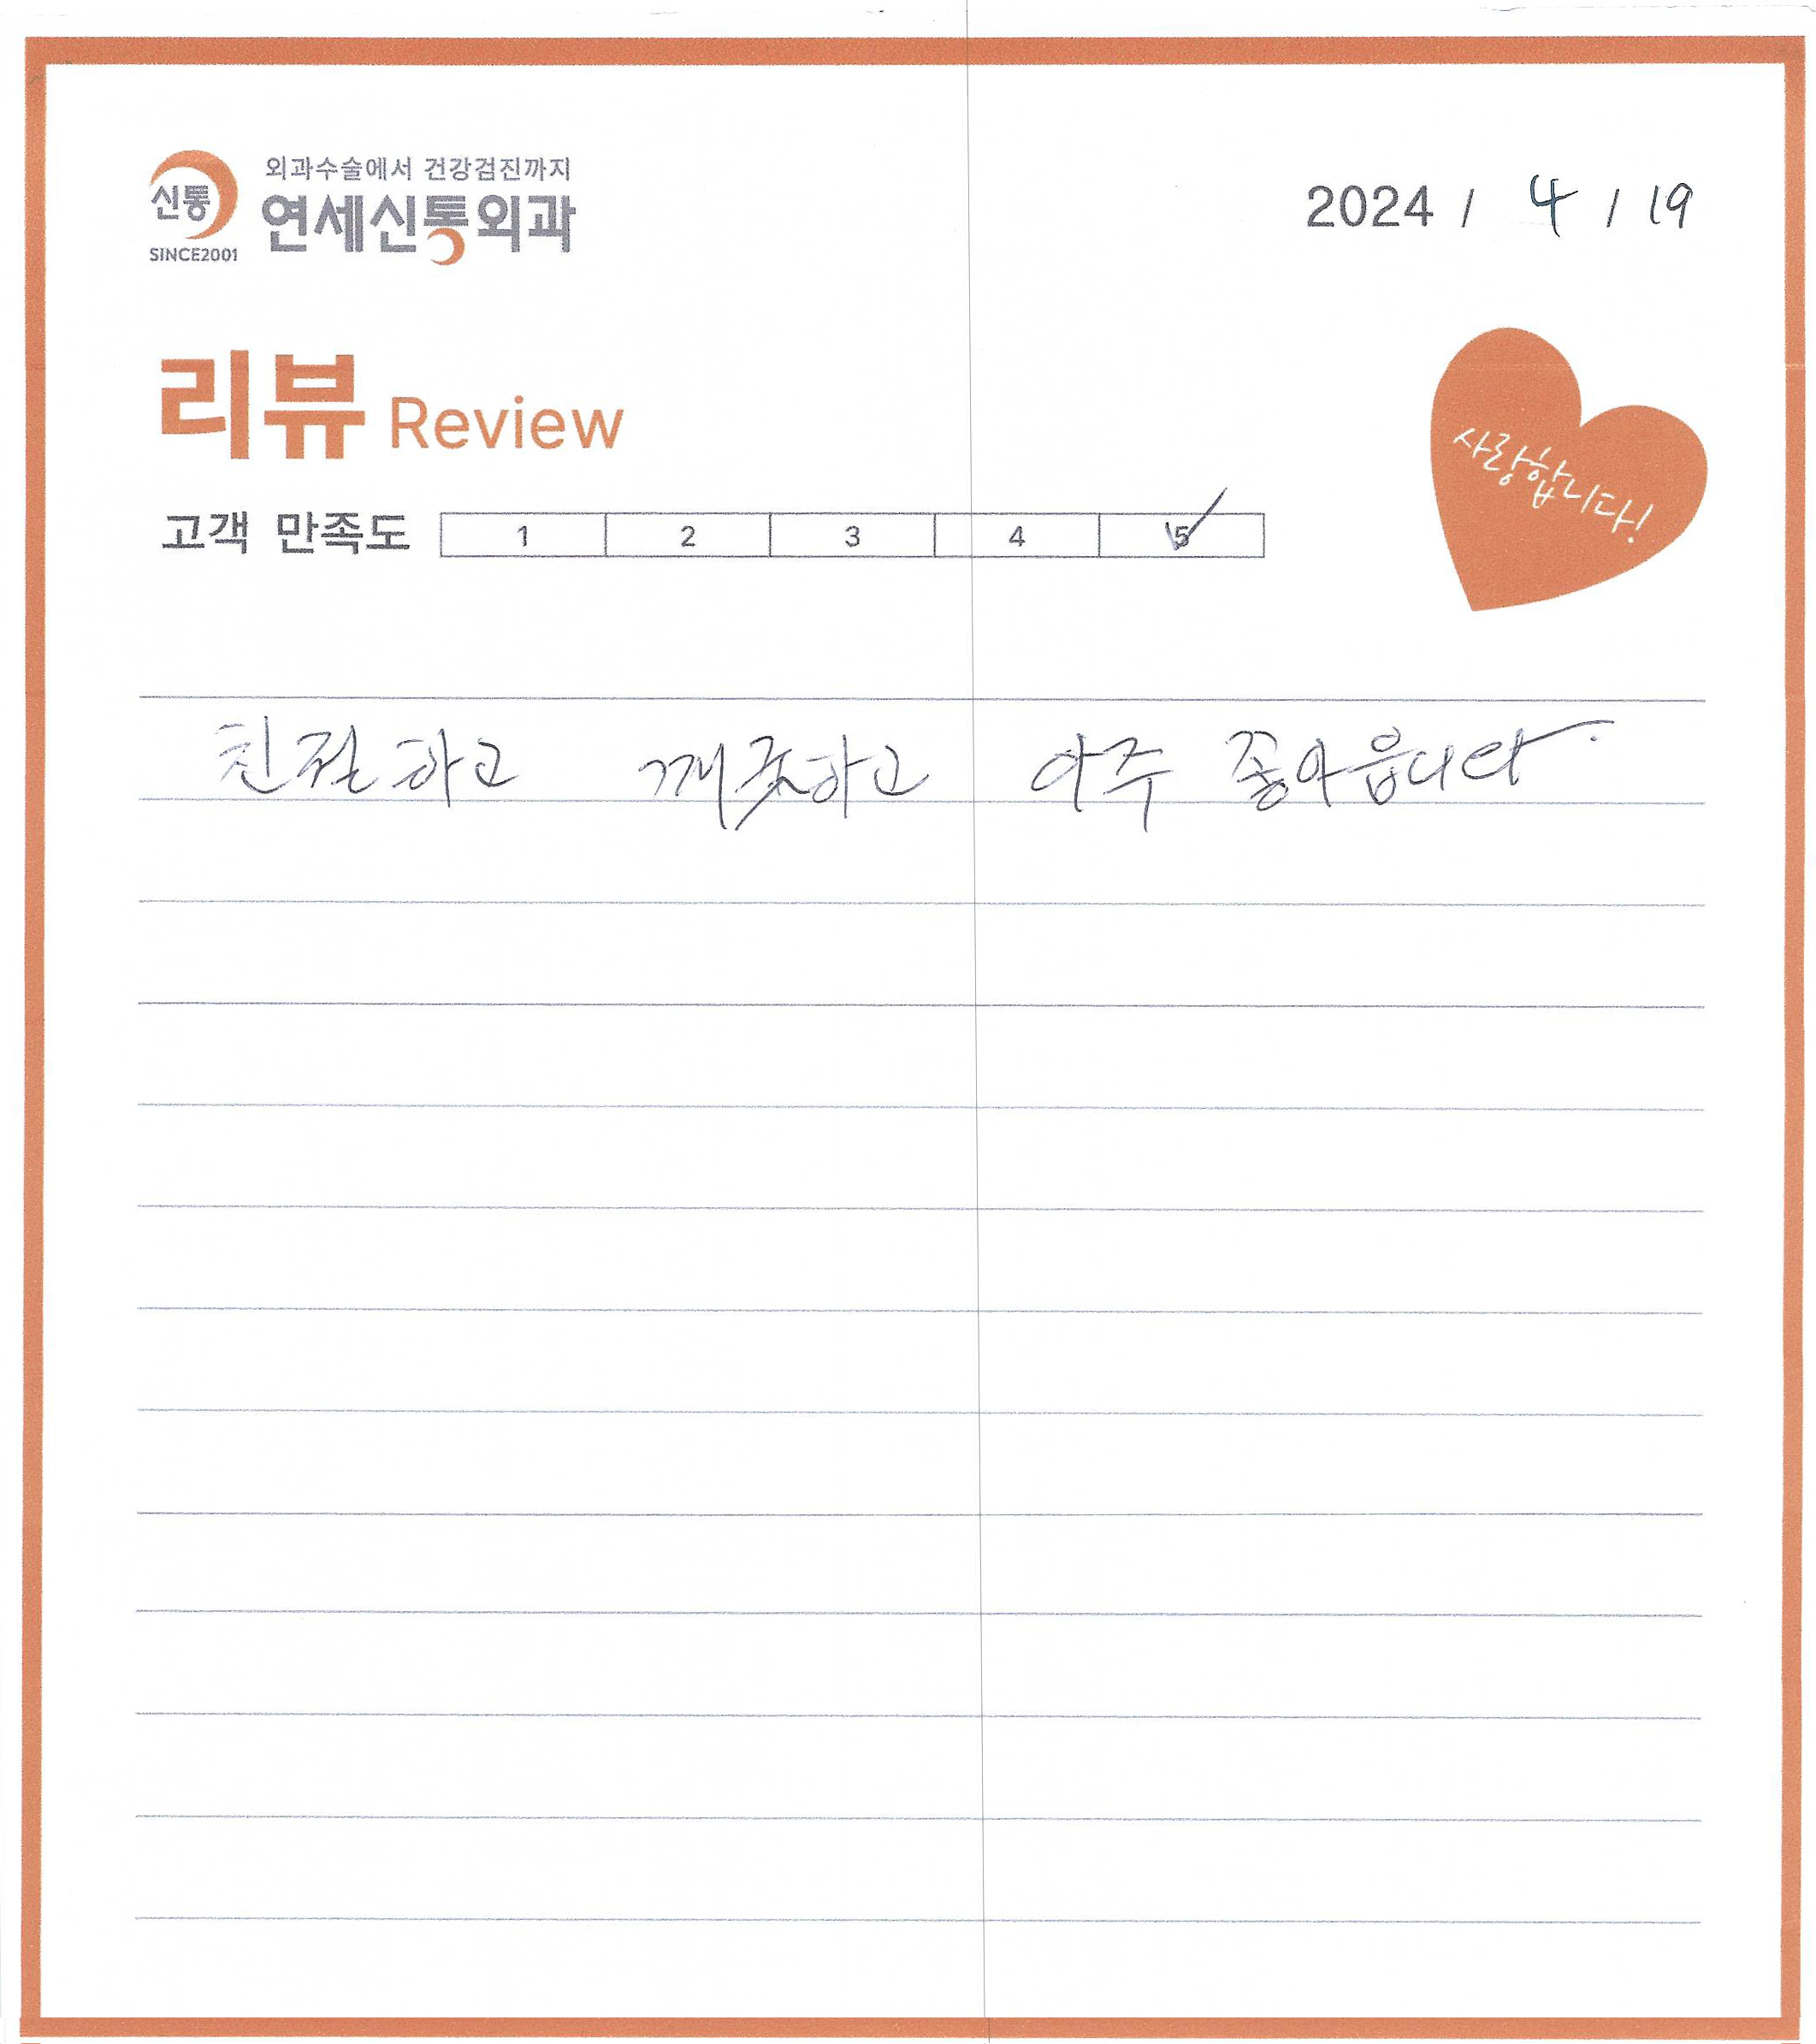 신통
SINCE2001
외과수술에서 건강검진까지
연세신통외과
2024 / 4 / 19
리뷰 Review
사랑합니다!
고객 만족도 1 2 3 4 5
친절하고 깨긋하고 아주 좋아읍니다.